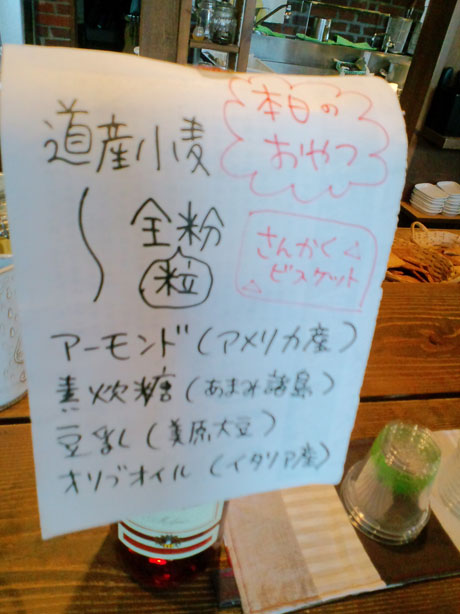 本日の
おやつ
道産小麦
全粉
粒
さんかく
ビスケット
アーモンド(アメリカ産)
素炊糖(あまみ諸島)
豆乳(美原大豆)
オリブオイル(イタリア産)